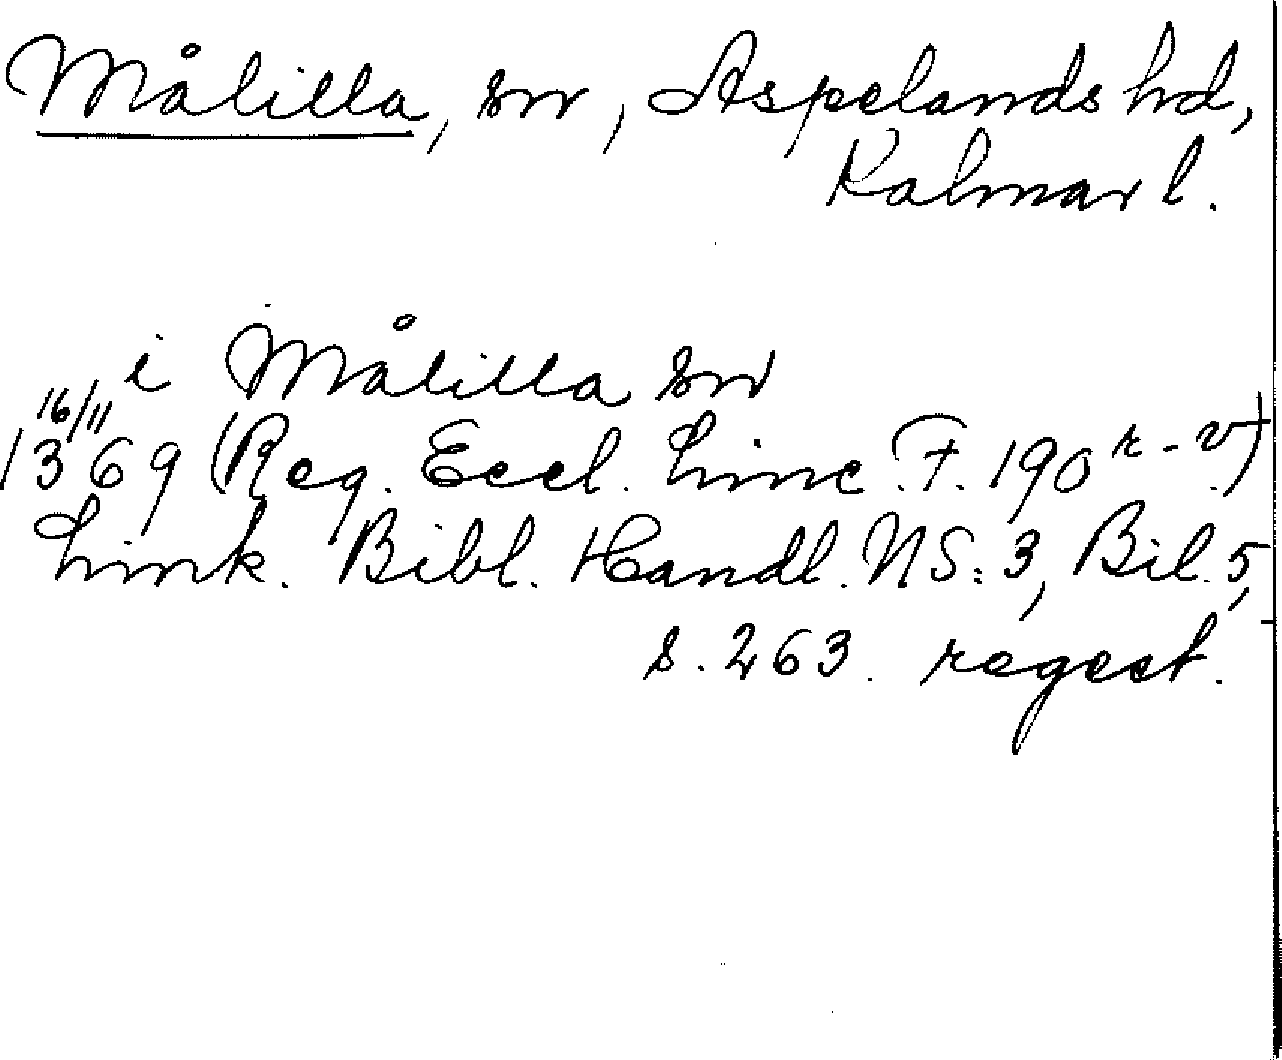 Målilla, sn, Aspelands hd,
Kalmar l.
i Målilla sn
16/11
1369 (Reg. Eccl. Linc F. 190 r-v)
Link. Bibl. Handl. NS: 3, Bil. 5,
s. 263. regest.